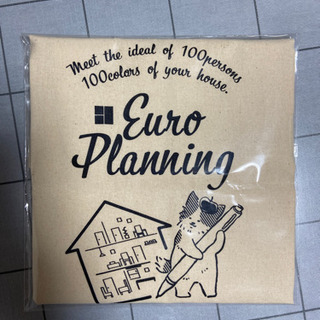 Meet the ideal of 100persons
100colors of your house.
Euro
Planning